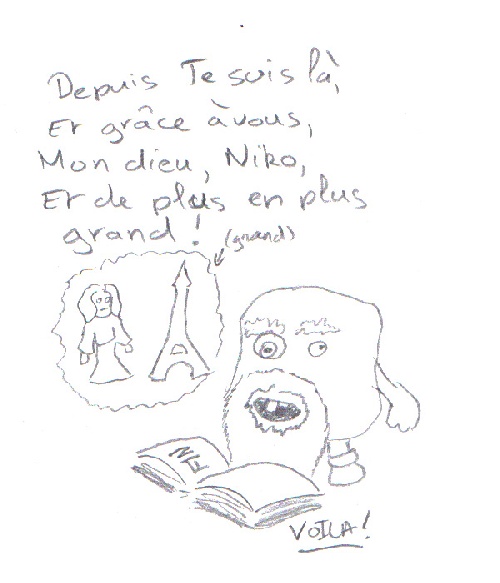 Depuis Je suis là,
Et grâce à vous,
Mon dieu, Niko,
Et de plus en plus
grand!
(grand)
FIN
VOILA!